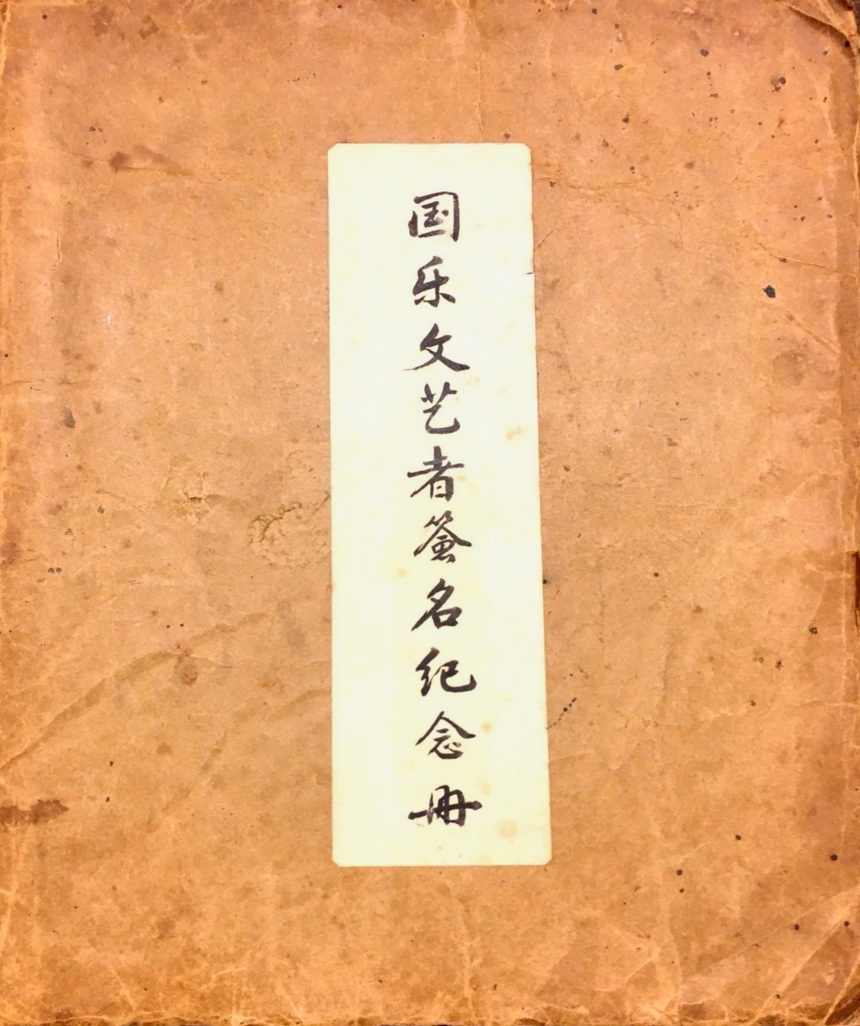 国乐文艺者签名纪念册